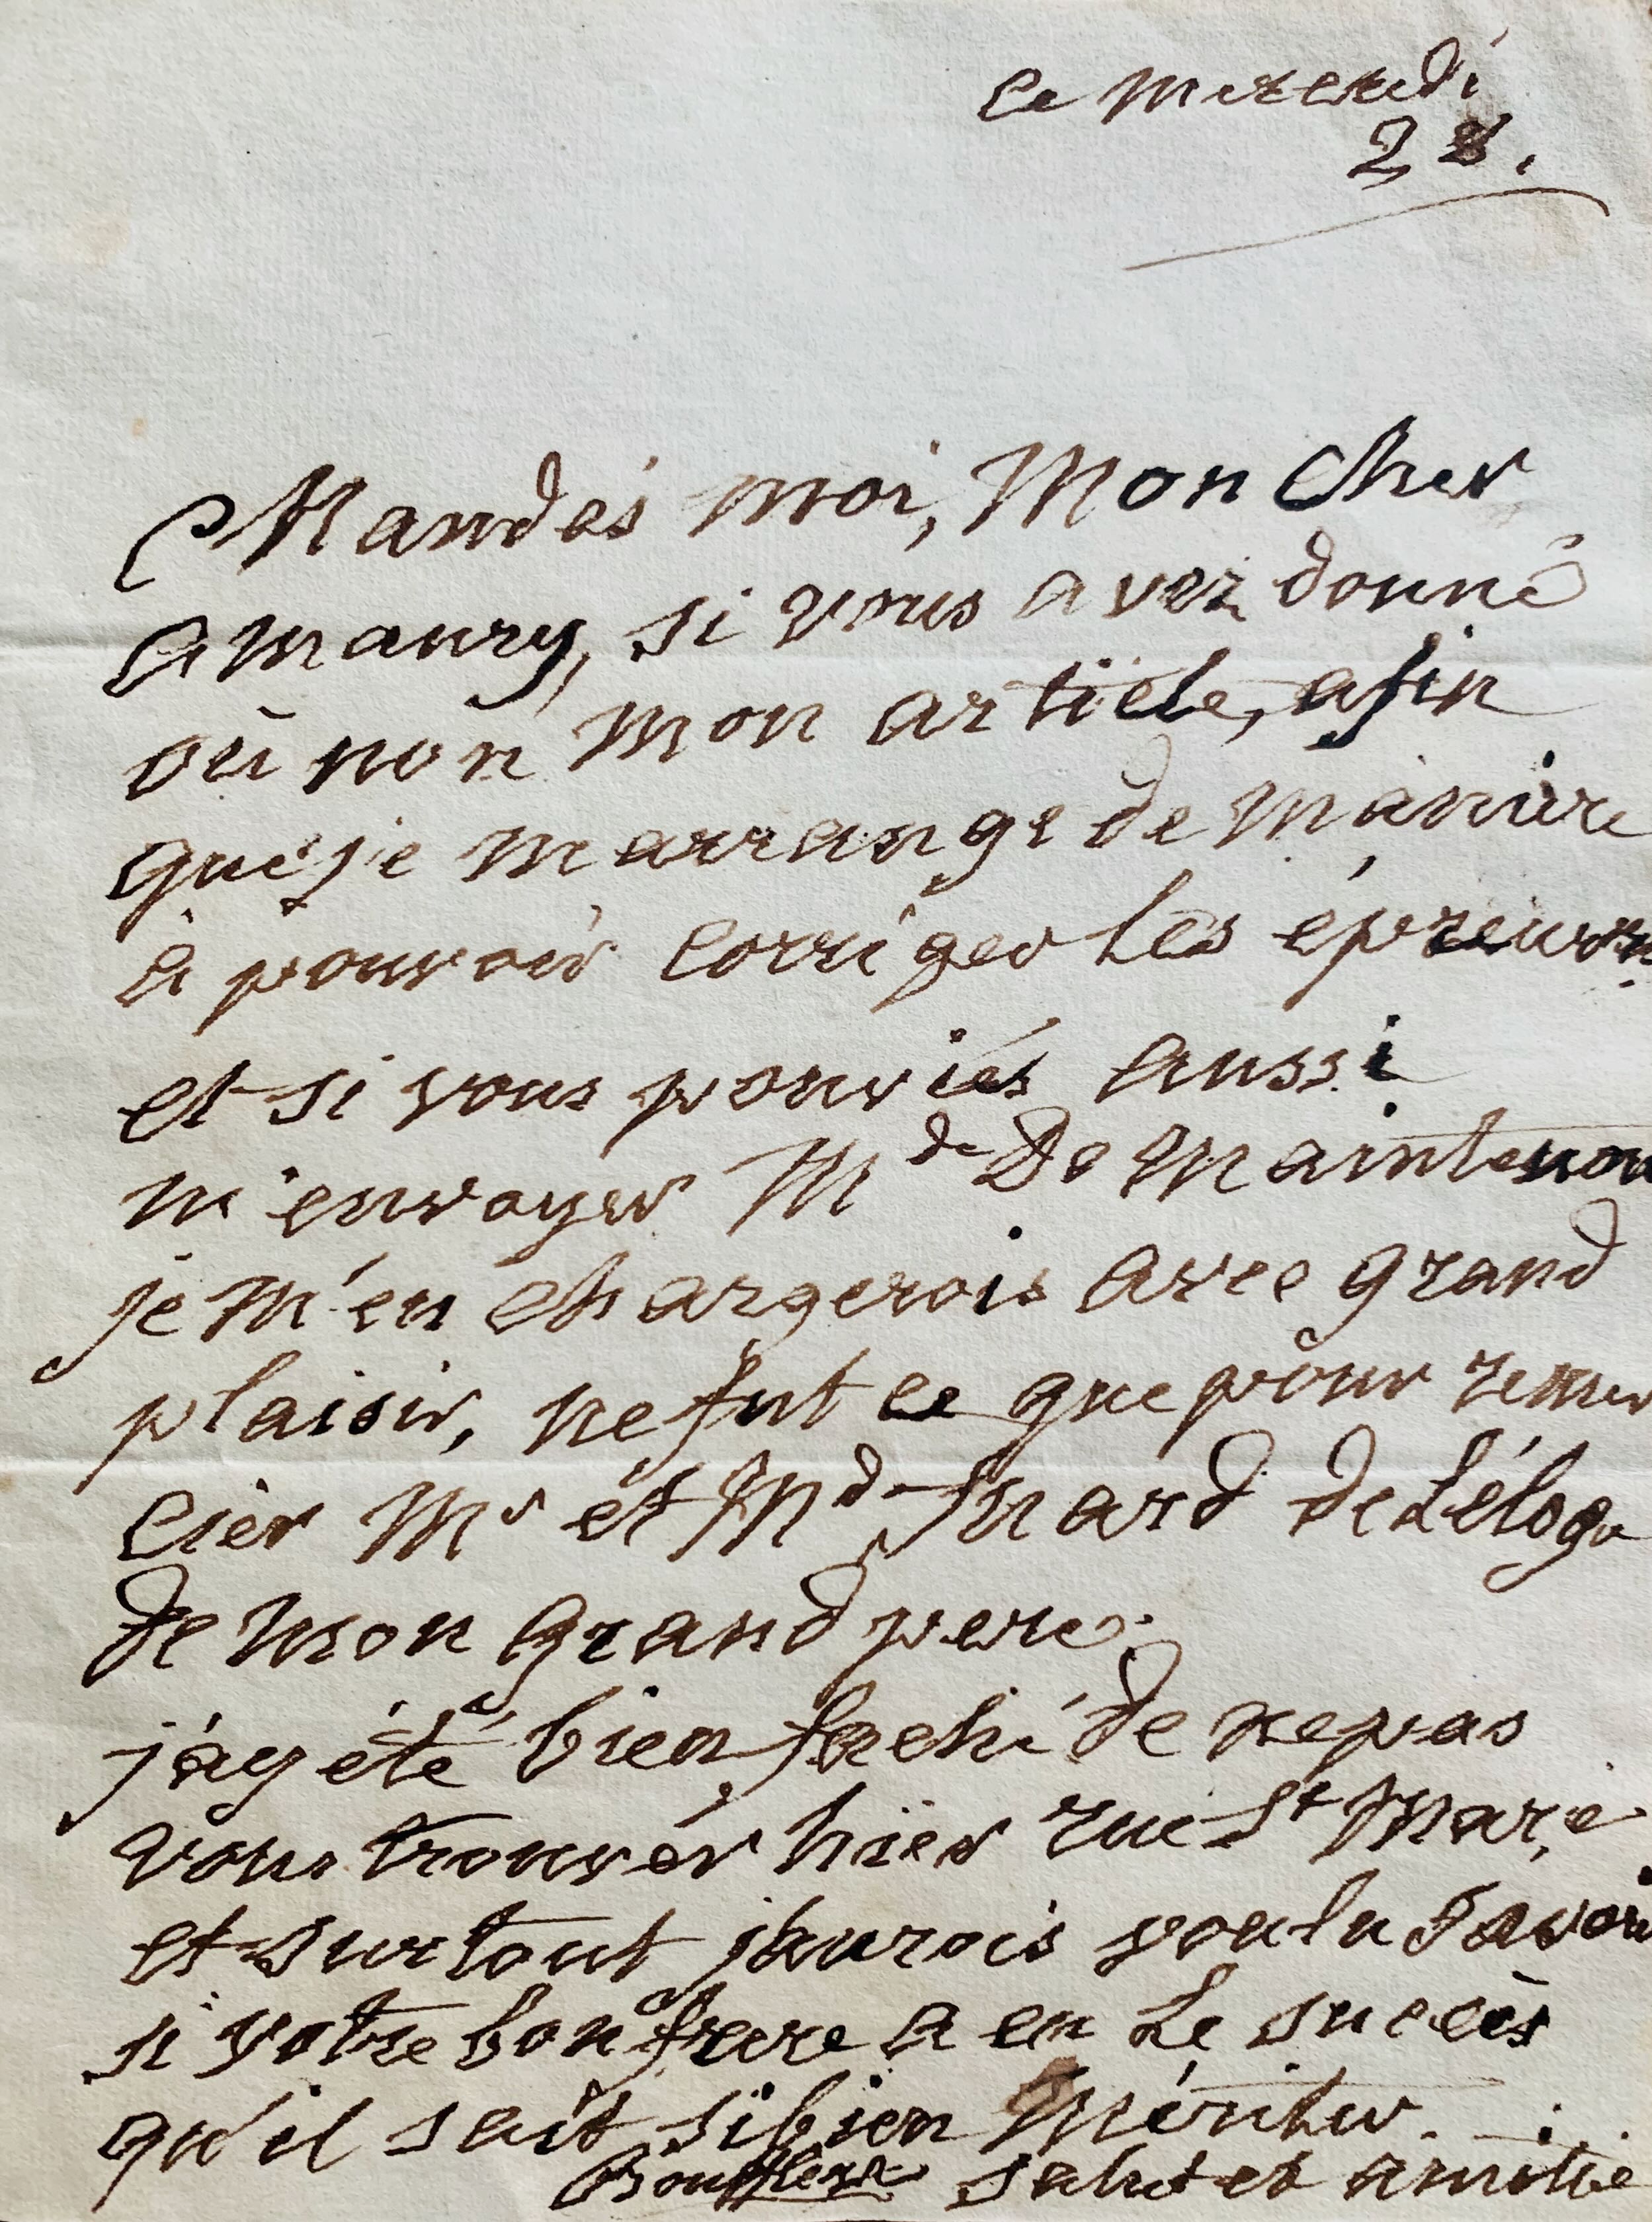 le mercredi
28.
Mandés moi, Mon Cher
amaury, si vous avez donné
où non mon article, afin
que je marrange de maniere
à pouvoir corriger les épreuves
et si vous pouviés aussi
m'envoyer Mde De Maintenon
je m'en chargerois avec grand
plaisir, ne fut ce que pour remer
cier Mr et Md Suard de L'éloge
de mon grand pere.
j'ay été bien faché de ne pas
vous trouver hier rue St Marc
et surtout jaurois voulu savoir
si votre bon frere a eu Le succès
qu'il sait si bien mériter.
Boufflers salut et amitié